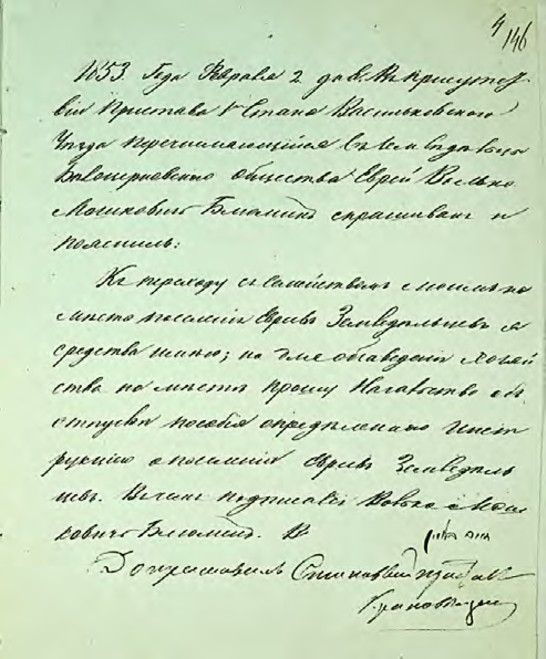 4
146
1853. Года Февраля 2 дня. Въ присутст-
віи Пристава 1 Стана Васильковского
Уѣзда перечисляющійся въ Земледельцы
Бѣлоцерковского общества Еврей Волько
Мошковичъ Блюминъ спрашиванъ и
пояснилъ:
Къ переходу съ Семействомъ моимъ на
мѣсто поселенія Евреевъ Земледельцевъ
средства имею; на обзаведеніе хозяй
ства на мѣстѣ прошу Начальство объ
отпуске пособія определенного Инст
рукціею о поселеніи Евреевъ Земледель
цевъ. Въ чемъ подписался Волько Мош
ковичъ Блюминъ.
Допрашивалъ Становый Приставъ